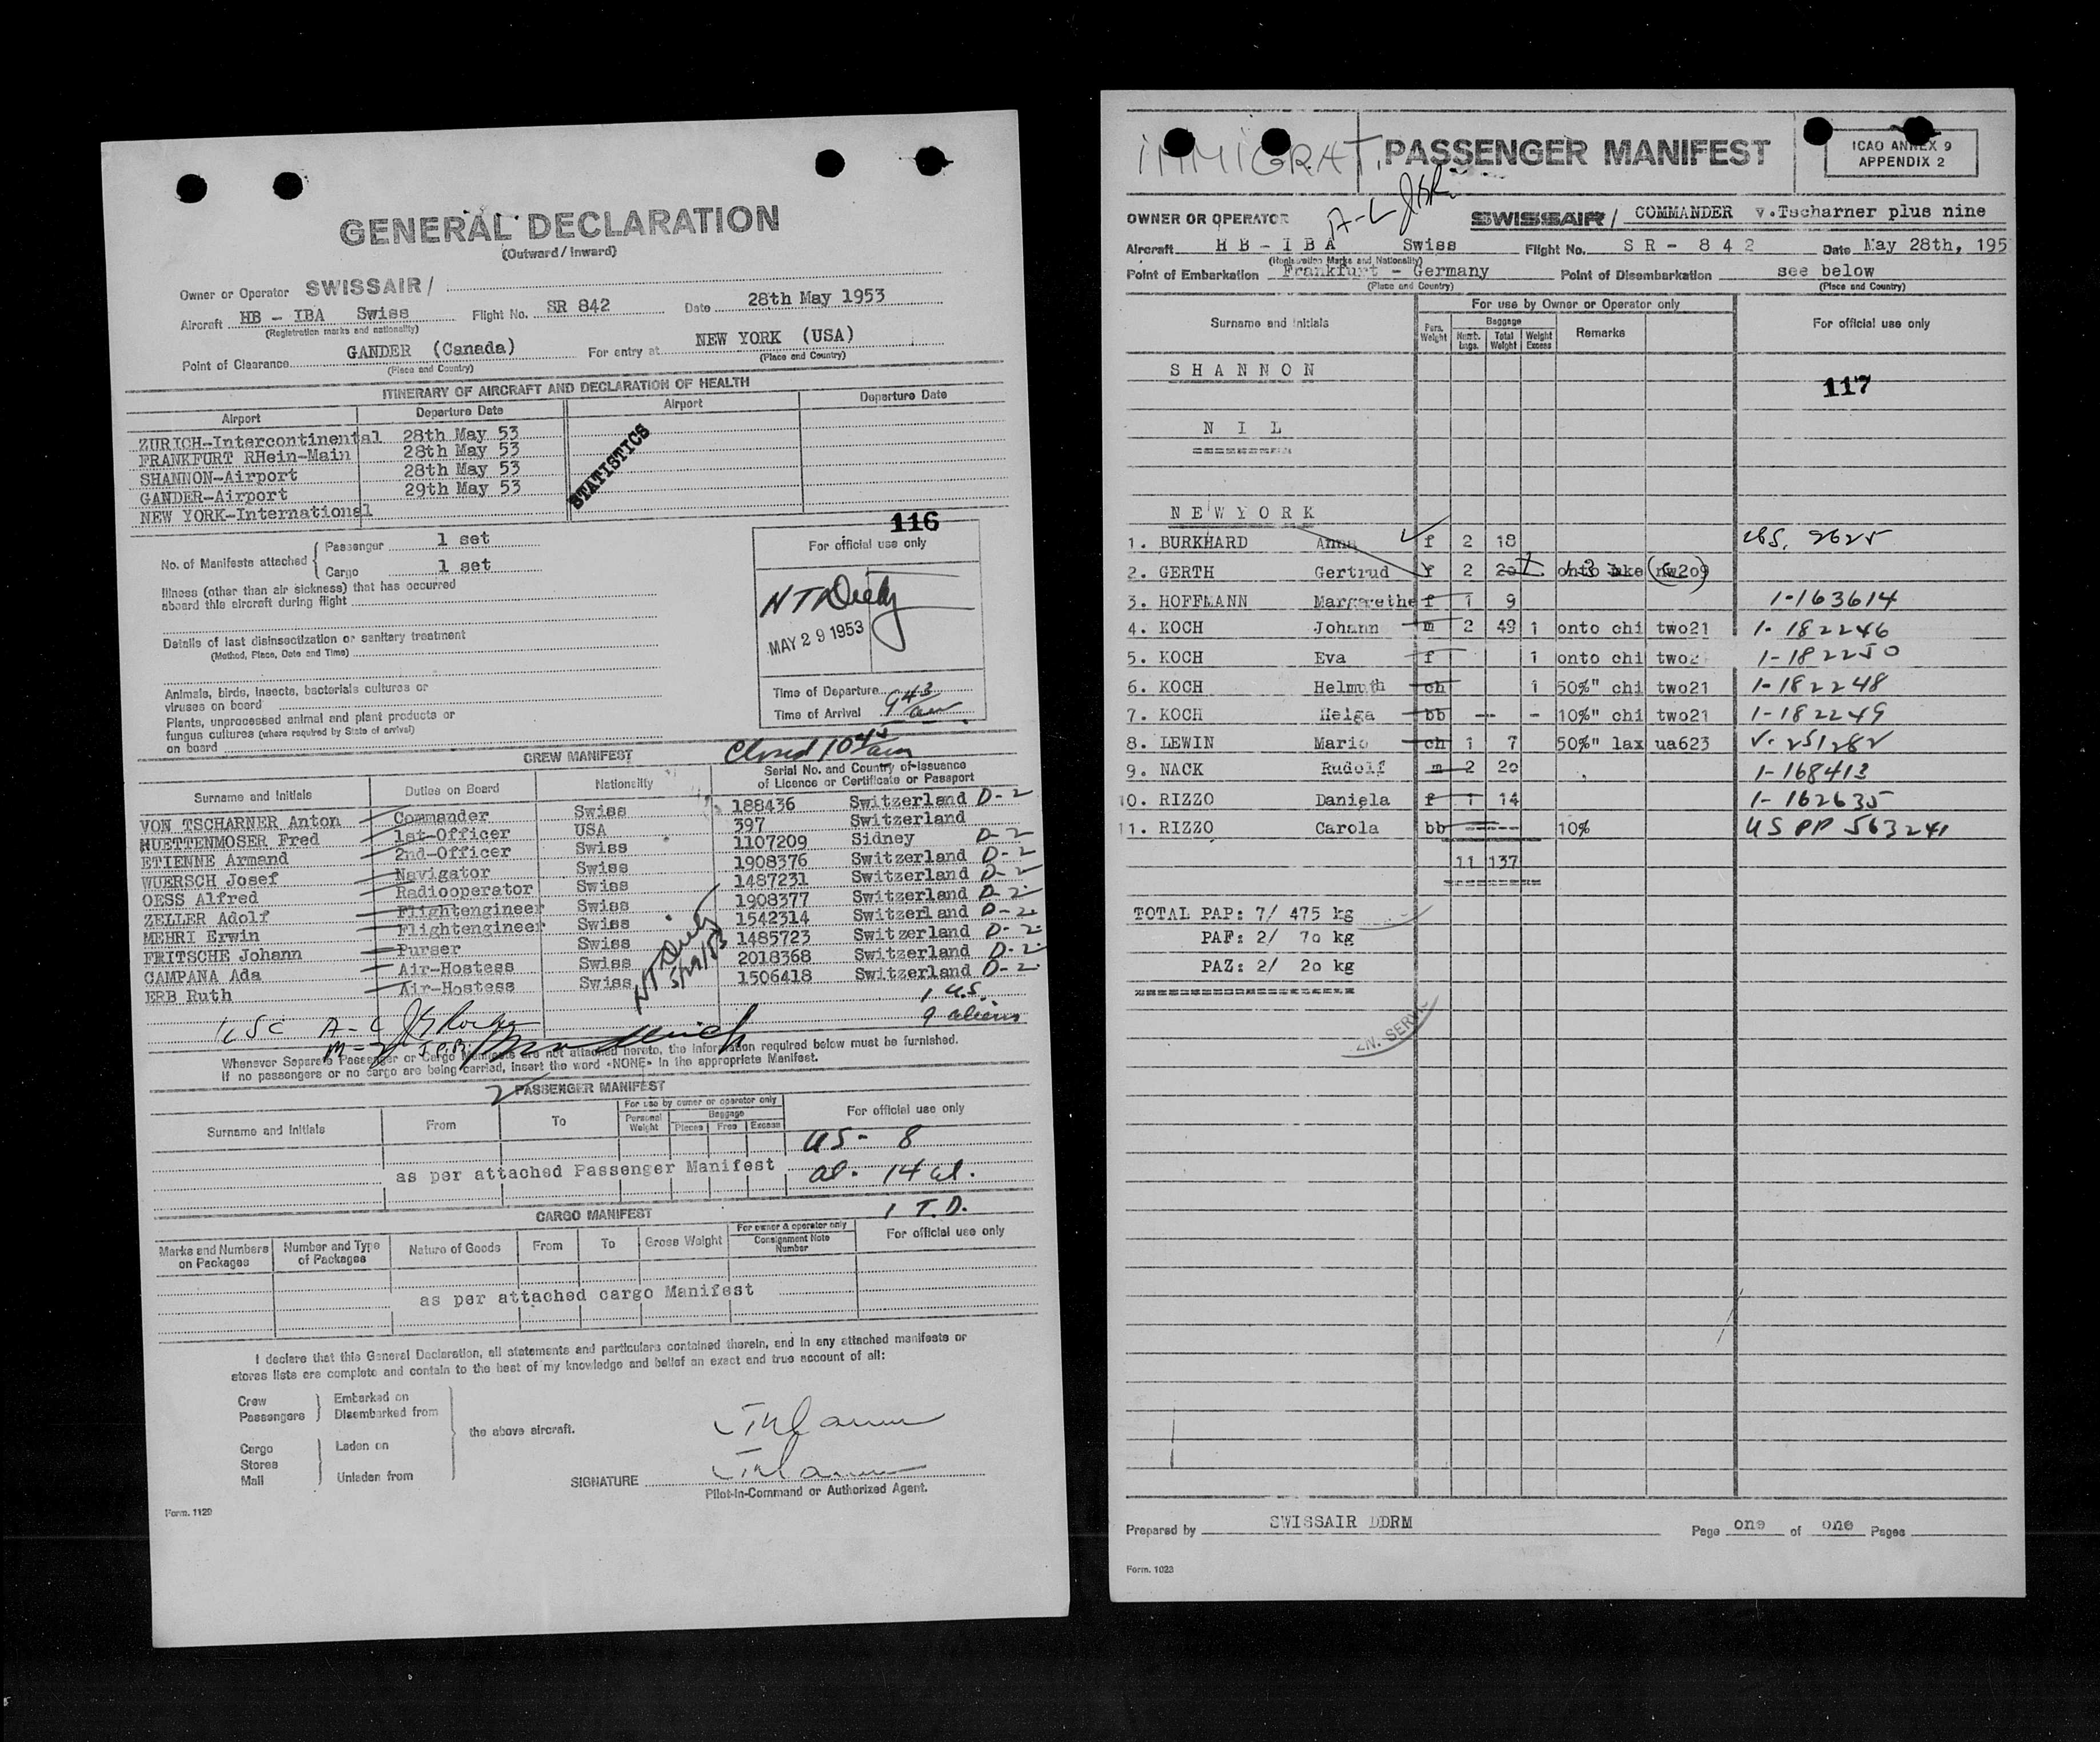 GENERAL DECLARATION
(Outward / Inward)
Owner or Operator SWISSAIR /
Aircraft HB - IBA Swiss Flight No. SR 842 Date 28th May 1953
(Registration marks and nationality)
Point of Clearance GANDER (Canada) For entry at NEW YORK (USA)
(Place and Country) (Place and Country)
ITINERARY OF AIRCRAFT AND DECLARATION OF HEALTH
Airport Departure Date Airport Departure Date
ZURICH-Intercontinental 28th May 53
FRANKFURT RHein-Main 28th May 53
SHANNON-Airport 28th May 53
GANDER-Airport 29th May 53
NEW YORK-International
STATISTICS
116
No. of Manifests attached Passenger 1 set
Cargo 1 set
For official use only
Illness (other than air sickness) that has occurred
aboard this aircraft during flight
MAY 29 1953
Details of last disinsectization or sanitary treatment
(Method, Place, Date and Time)
Animals, birds, insects, bacterials cultures or
viruses on board
Plants, unprocessed animal and plant products or
fungus cultures (where required by State of arrival)
on board
Time of Departure
Time of Arrival 9 43 am
Closed 10 45 am
CREW MANIFEST
Surname and Initials Duties on Board Nationality Serial No. and Country of Issuance
of Licence or Certificate or Passport
VON TSCHARNER Anton Commander Swiss 188436 Switzerland D-2
HUETTENMOSER Fred 1st-Officer USA 397 Switzerland
ETIENNE Armand 2nd-Officer Swiss 1107209 Sidney D-2
WUERSCH Josef Navigator Swiss 1908376 Switzerland D-2
OESS Alfred Radiooperator Swiss 1487231 Switzerland D-2
ZELLER Adolf Flightengineer Swiss 1908377 Switzerland D-2
MEHRI Erwin Flightengineer Swiss 1542314 Switzerland D-2
FRITSCHE Johann Purser Swiss 1485723 Switzerland D-2
CAMPANA Ada Air-Hostess Swiss 2018368 Switzerland D-2
ERB Ruth Air-Hostess Swiss 1506418 Switzerland D-2
5/29/53
1 U.S.
9 aliens
USC A-L
Whenever Separate Passenger or Cargo Manifests are not attached hereto, the information required below must be furnished.
If no passengers or no cargo are being carried, insert the word «NONE» in the appropriate Manifest.
PASSENGER MANIFEST
Surname and Initials From To For use by owner or operator only For official use only
Personal Weight Baggage
Pieces Free Excess
US - 8
as per attached Passenger Manifest al. 14 al.
1 T.D.
CARGO MANIFEST
Marks and Numbers on Packages Number and Type of Packages Nature of Goods From To Gross Weight For owner & operator only Consignment Note Number For official use only
as per attached cargo Manifest
I declare that this General Declaration, all statements and particulars contained therein, and in any attached manifests or
stores lists are complete and contain to the best of my knowledge and belief an exact and true account of all:
Crew Embarked on
Passengers Disembarked from
the above aircraft.
Cargo Laden on
Stores
Mail Unladen from
SIGNATURE
Pilot-in-Command or Authorized Agent.
Form. 1129
IMMIGRAT. PASSENGER MANIFEST
ICAO ANNEX 9
APPENDIX 2
A-L
OWNER OR OPERATOR SWISSAIR / COMMANDER v.Tscharner plus nine
Aircraft HB - IBA Swiss Flight No. SR - 842 Date May 28th, 195
(Registration Marks and Nationality)
Point of Embarkation Frankfurt - Germany Point of Disembarkation see below
(Place and Country) (Place and Country)
Surname and Initials For use by Owner or Operator only For official use only
Pers. Weight Baggage Remarks
Numb. bags. Total Weight Weight Excess
SHANNON
117
NIL
NEWYORK
1. BURKHARD Anna f 2 18
2. GERTH Gertrud f 2 20 onto mke nw209
3. HOFFMANN Margarethe f 1 9 1-163614
4. KOCH Johann m 2 49 1 onto chi two21 1-182246
5. KOCH Eva f 1 onto chi two2 1-182250
6. KOCH Helmuth ch 1 50%" chi two21 1-182248
7. KOCH Helga bb -- - 10%" chi two21 1-182249
8. LEWIN Mario ch 1 7 50%" lax ua623 V-251282
9. NACK Rudolf m 2 20 1-168413
10. RIZZO Daniela f 1 14 1-162635
11. RIZZO Carola bb ----- 10% US PP 563241
11 137
TOTAL PAP: 7/ 475 kg
PAF: 2/ 70 kg
PAZ: 2/ 20 kg
ZN. SERVIC
Prepared by SWISSAIR DDRM Page one of one Pages
Form. 1023